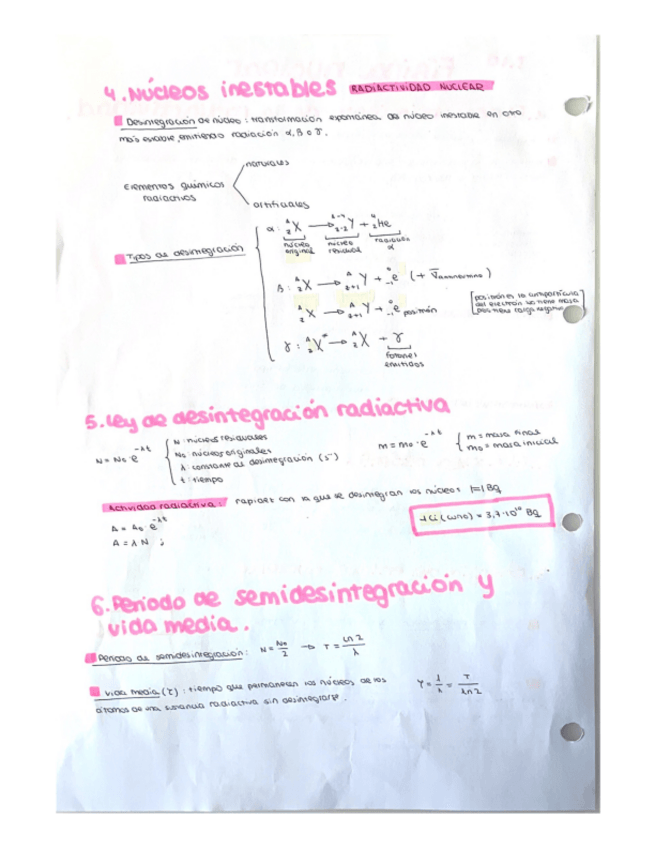 4. Núcleos inestables RADIACTIVIDAD NUCLEAR
Desintegración de núcleo: transformación espontánea de núcleo inestable en otro
más estable, emitiendo radiación α, β o γ.
naturales
Elementos químicos
radiactivos
artificiales
Tipos de desintegración
α: ᴬ_Z X → ᴬ⁻⁴_Z-2 Y + ⁴_2 He
núcleo original núcleo residual radiación α
β: ᴬ_Z X → ᴬ_Z+1 Y + ⁰_-1 e (+ ν̄)
ᴬ_Z X → ᴬ_Z+1 Y + ⁰_-1 e positrón
[positrón es la antipartícula
del electrón no tiene masa
pos tiene carga]
γ: ᴬ_Z X* → ᴬ_Z X + γ
fotones
emitidos
5. Ley de desintegración radiactiva
N = N₀ · e^-λt
N: núcleos residuales
N₀: núcleos originales
λ: constante de desintegración (s⁻)
t: tiempo
m = m₀ · e^-λt
m = masa final
m₀ = masa inicial
Actividad radiactiva: rapidez con la que se desintegran los núcleos 1=1 Bq
A = A₀ · e^-λt
A = λ N ;
1 Ci (curio) = 3,7·10¹⁰ Bq
6. Período de semidesintegración y
vida media.
Período de semidesintegración: N = N₀/2 → T = ln 2/λ
Vida media (τ): tiempo que permanecen los núcleos de los
átomos de una sustancia radiactiva sin desintegrarse.
τ = 1/λ = T/ln 2